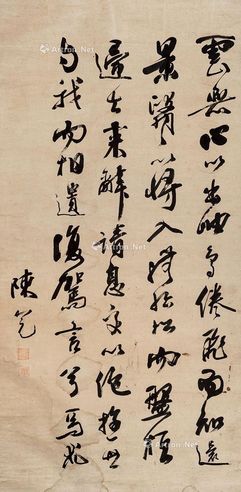 雲無心以出岫鳥倦飛而知還
景翳翳以將入撫孤松而盤桓
歸去來辭請息交以絕遊世
與我而相遺復駕言兮焉求
陳
Artron.Net